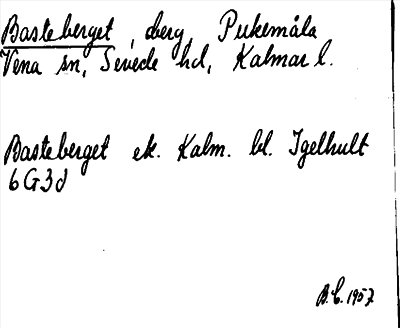 Basteberget, berg, Pukemåla
Vena sn, Sevede hd, Kalmar l.
Basteberget ek. Kalm. bl. Igelhult
6G3d
B.C. 1957